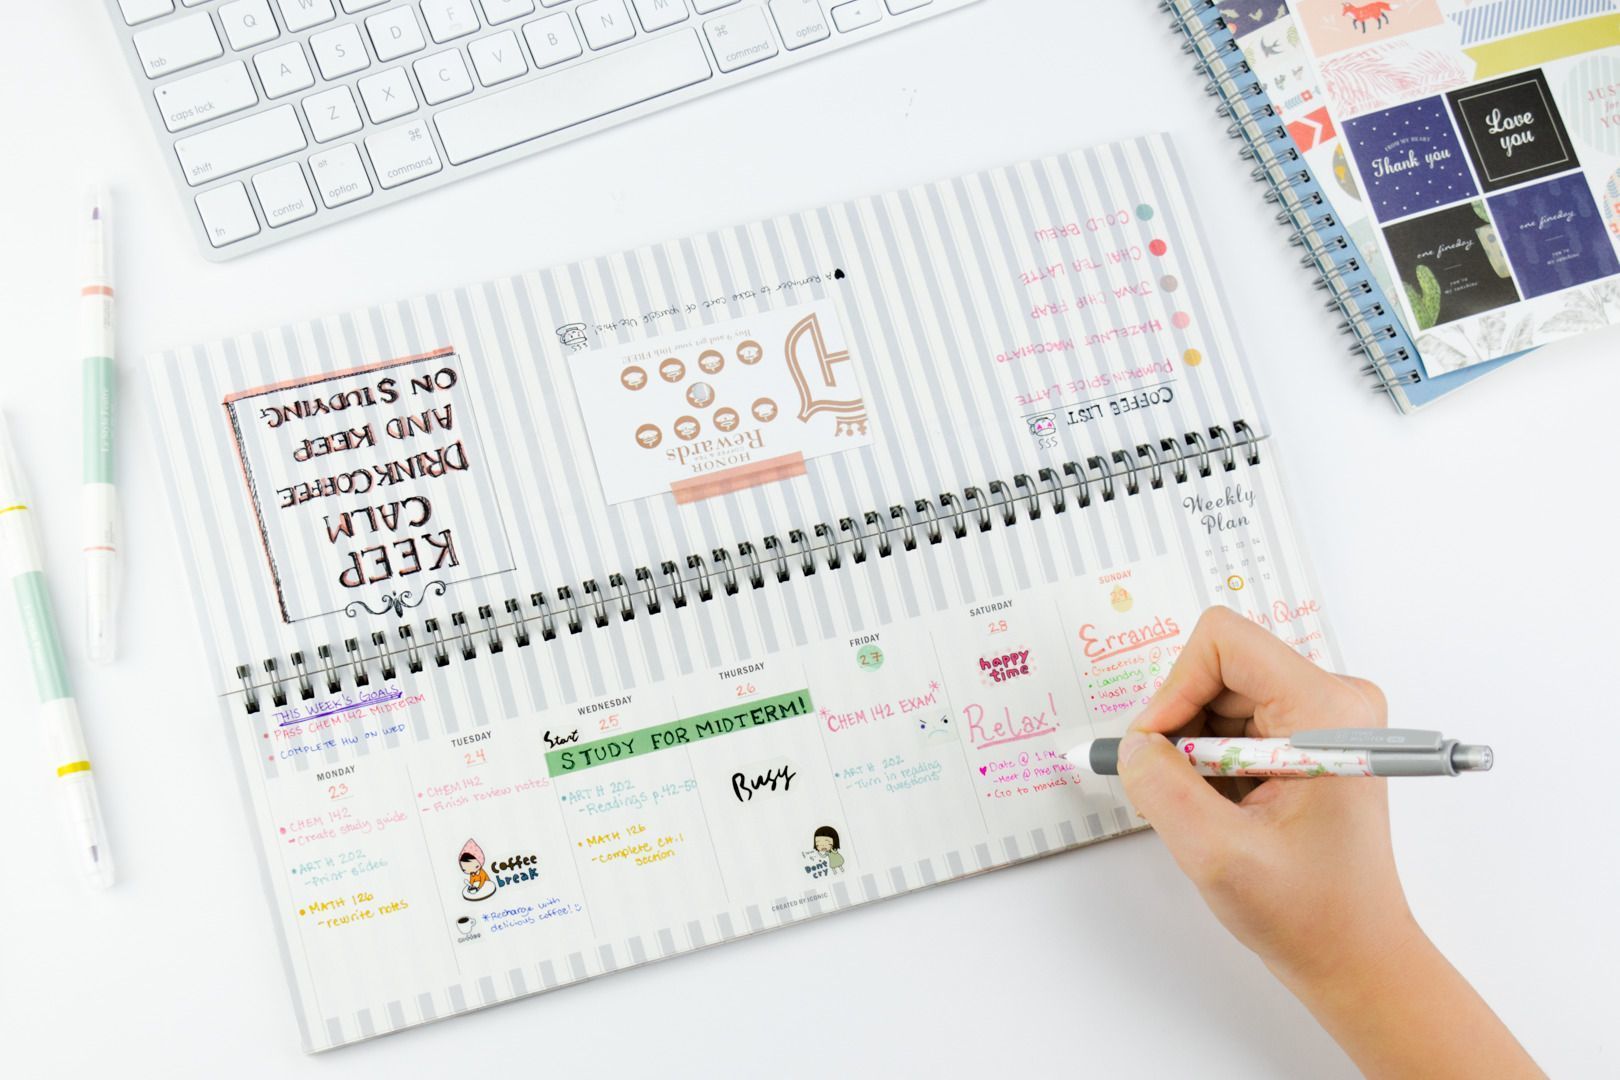 tab
Q
W
caps lock
A
S
D
F
shift
Z
X
C
V
B
N
M
fn
control
alt
option
⌘
command
⌘
command
alt
option
FROM MY HEART
Thank you
Love
you
one fineday
one fineday
♥ A Reminder to take care of yourself. Use this!
Buy 9 and get your 10th FREE!
HONOR
COFFEE & TEA
Rewards
KEEP
CALM
DRINK COFFEE
AND KEEP
ON STUDYING
COFFEE LIST
PUMPKIN SPICE LATTE
HAZELNUT MACCHIATO
JAVA CHIP FRAP
CHAI TEA LATTE
COLD BREW
Weekly
Plan
01 02 03 04
05 06 07 08
09 10 11 12
THIS WEEK'S GOALS
• PASS CHEM 142 MIDTERM
• COMPLETE HW ON WED
MONDAY
23
• CHEM 142
- Create study guide
• ART H 202
- Print slides
• MATH 126
- rewrite notes
TUESDAY
24
• CHEM 142
- Finish review notes
coffee
break
*Recharge with
delicious coffee!
WEDNESDAY
25
Start
STUDY FOR MIDTERM!
• ART H 202
- Readings p.42-50
• MATH 126
- Complete CH.1
section
THURSDAY
26
Busy
Don't
cry
CREATED BY ICONIC
FRIDAY
27
*CHEM 142 EXAM*
• ART H 202
- Turn in reading
questions
SATURDAY
28
happy
time
Relax!
♥ Date @ 1 PM
- Meet @ Pike Place
• Go to movies
SUNDAY
29
Errands
• Groceries @ 1 PM
• Laundry @
• Wash car @
• Deposit
Quote